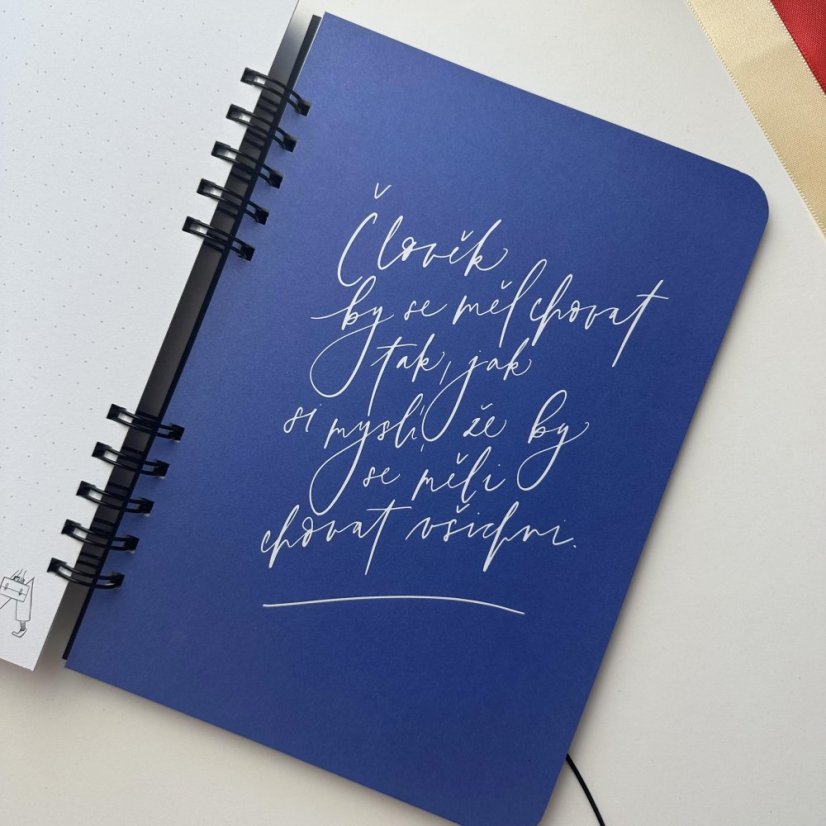 Člověk
by se měl chovat
tak, jak
si myslí, že by
se měli
chovat všichni.